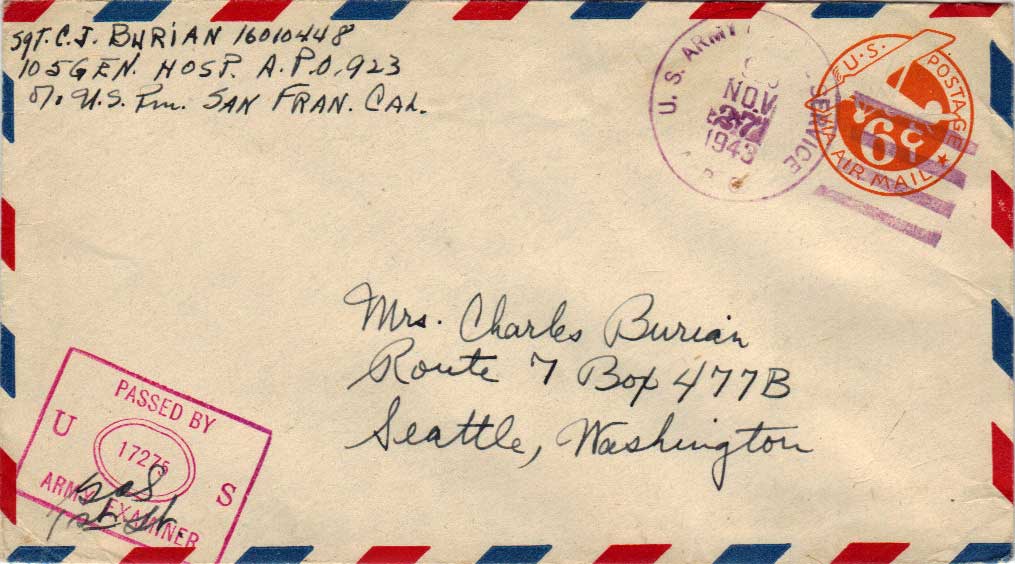 Sgt. C. J. BURIAN 16010448
105 GEN. HOSP. A.P.O. 923
c/o U.S. Pm. SAN FRAN. CAL.
U.S. ARMY SERVICE
NOV
27
1943
U.S. POSTAGE
6¢
VIA AIR MAIL
Mrs. Charles Burian
Route 7 Box 477B
Seattle, Washington
PASSED BY
U 17275 S
ARMY EXAMINER
1st Lt.